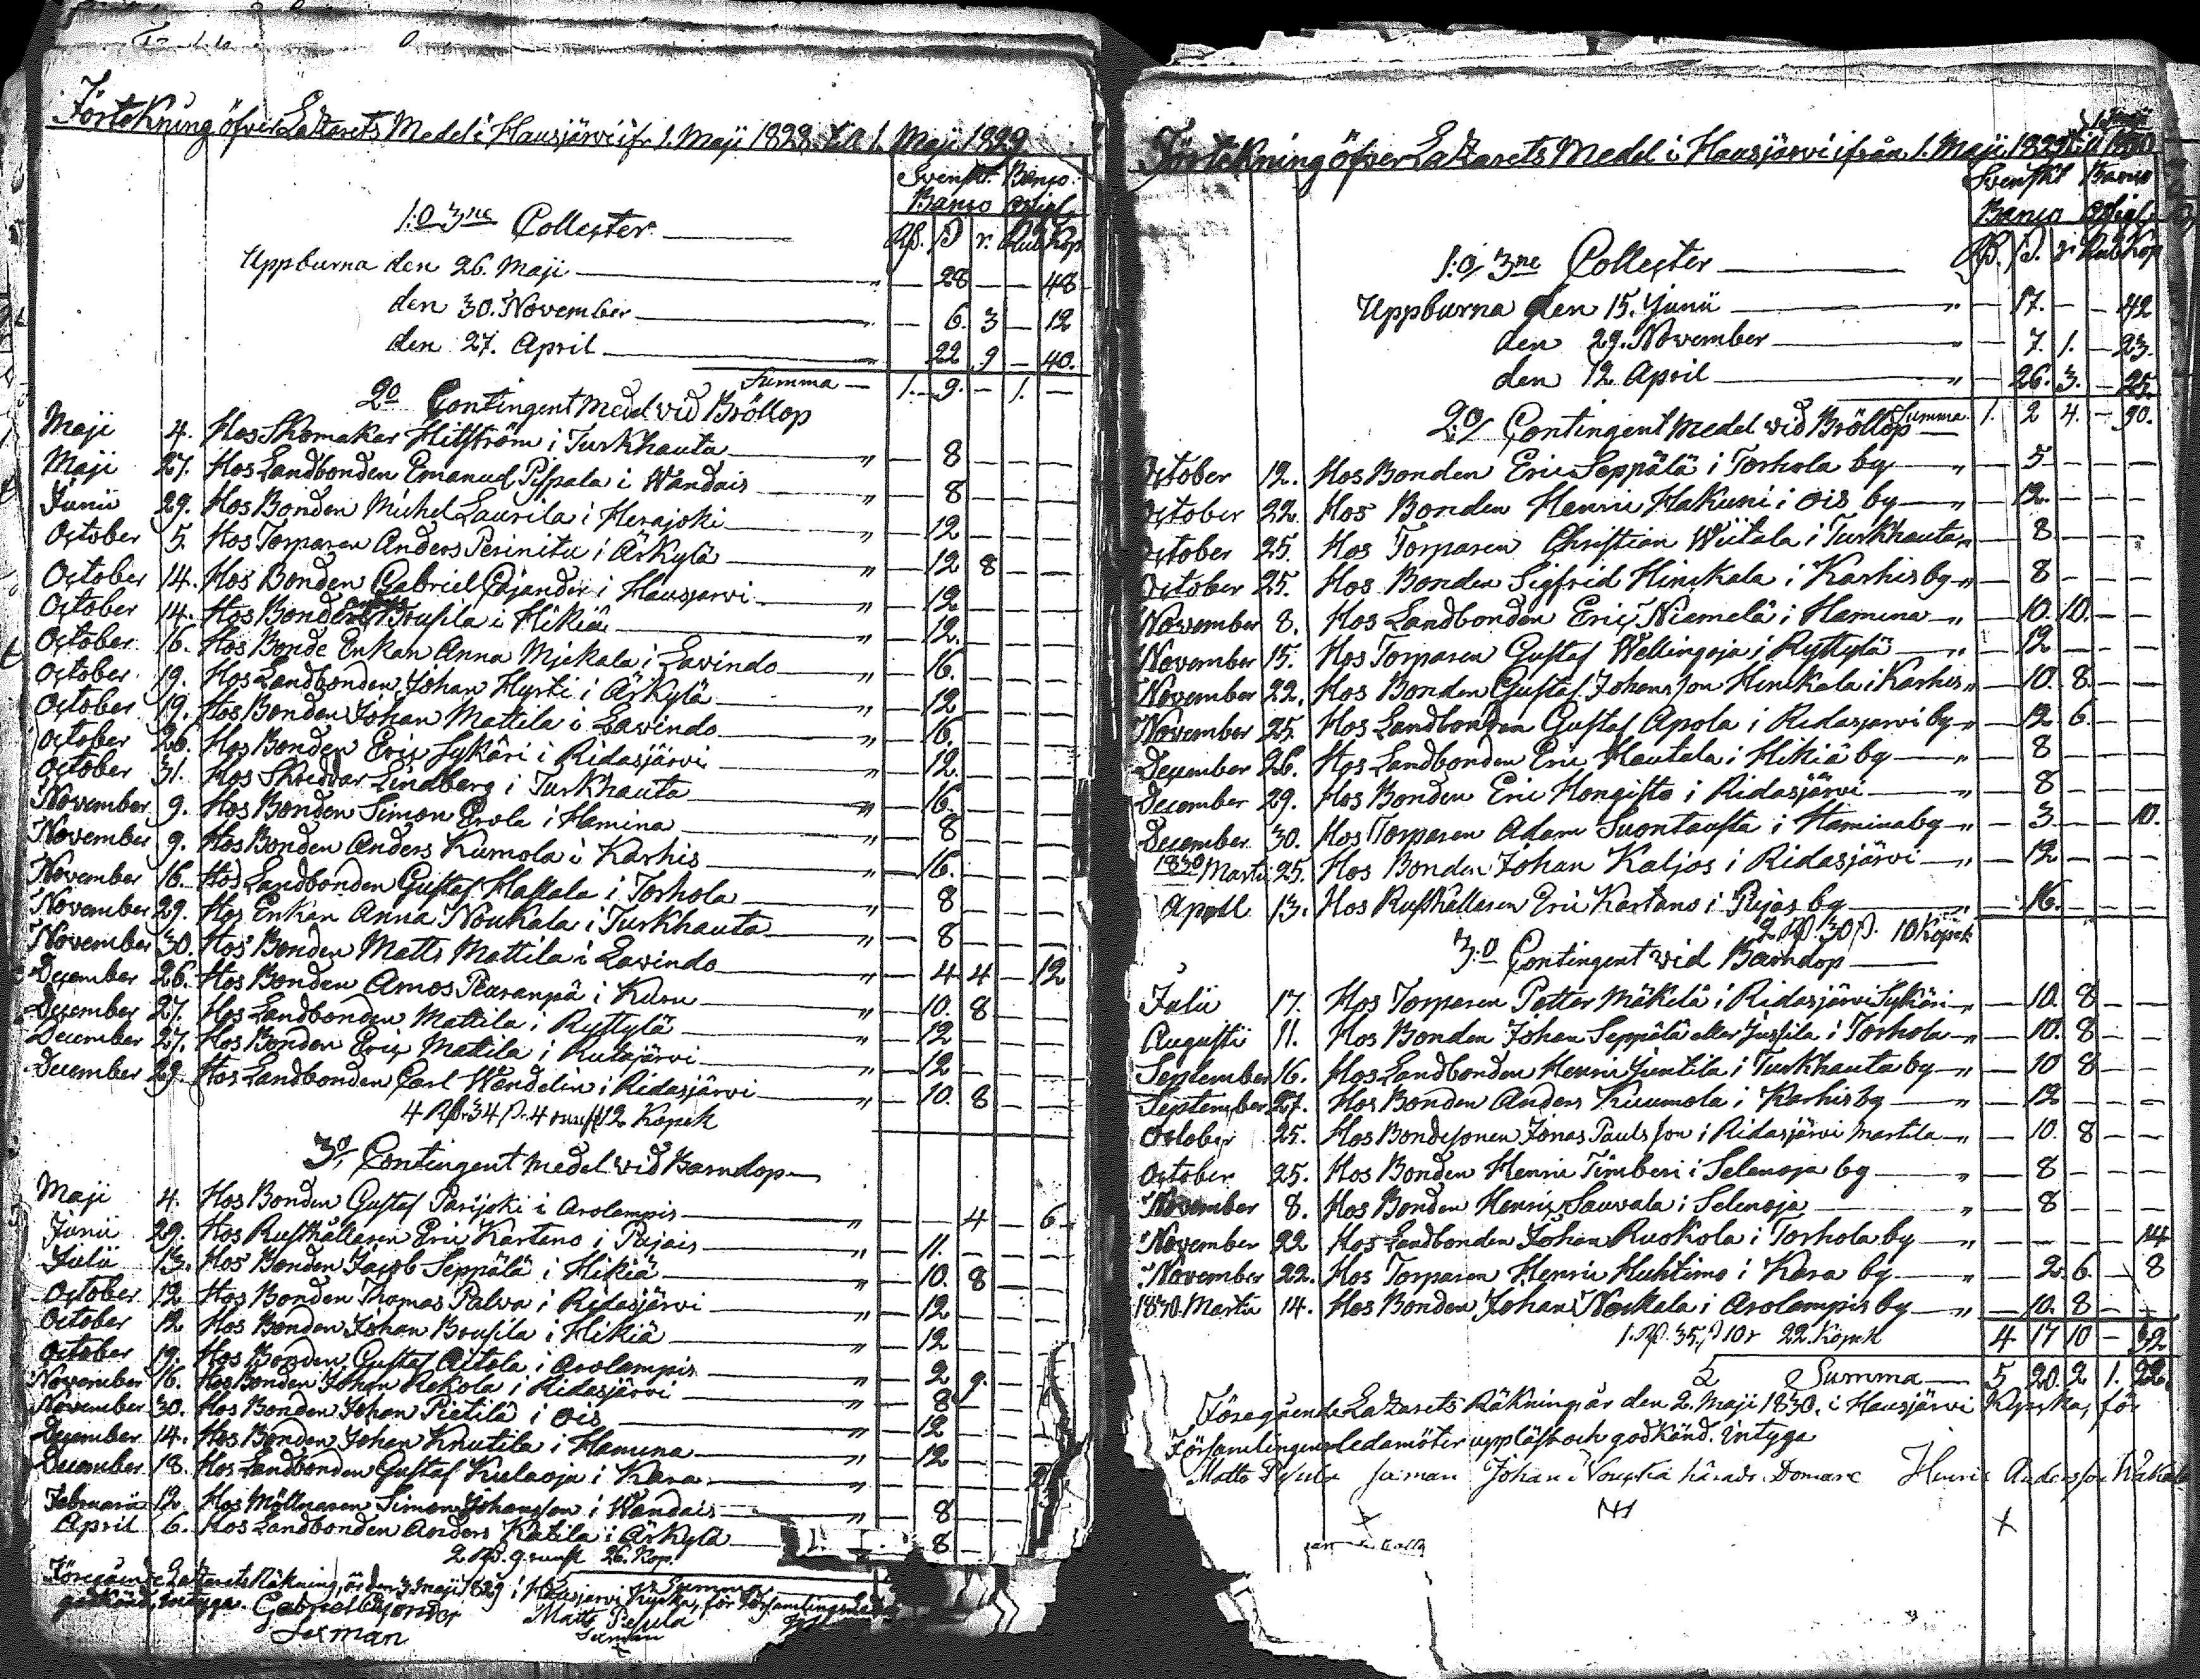 Förtekning öfver Lazarets Medel i Hausjärvi ifr. 1. Maji 1828. till 1. Maji 1829
Svenskt Banco
Banco Assigt.
1:o 3ne Collecter Rß. ß r. Rub Kop
Uppburna den 26. Maji " — 28 — — 48
den 30. November " — 6. 3 — 12
den 27. April " — 22 9 — 40.
Summa — 1. 9. — 1. —
2o Contingent Medel vid Bröllop
Maji 4. Hos Skomakar Hitström i Turkhauta " — 8 — — —
Maji 27. Hos Landbonden Emanuel Pispala i Wandais " — 8 — — —
Junii 29. Hos Bonden Michel Laurila i Herajoki " — 12 — — —
October 5. Hos Torparen Anders Perinitu i Ärkylä " — 12 8 — —
October 14. Hos Bonden Gabriel Cajander i Hausjärvi " — 12 — — —
October 14. Hos Bonden Brusila i Hikiä " — 12. — — —
October 16. Hos Bonde Enkan Anna Mickala i Lavindo " — 16. — — —
October 19. Hos Landbonden Johan Hyrti i Ärkylä " — 12 — — —
October 19. Hos Bonden Johan Mattila i Lavindo " — 16. — — —
October 26. Hos Bonden Eric Sykäri i Ridasjärvi " — 12. — — —
October 31. Hos Skreddar Lindberg i Turkhauta " — 16. — — —
November 9. Hos Bonden Simon Erola i Hamina " — 8 — — —
November 9. Hos Bonden Anders Kumola i Karhis " — 16. — — —
November 16. Hos Landbonden Gustaf Hallala i Torhola " — 8 — — —
November 29. Hos Enkan Anna Noukala i Turkhauta " — 8 — — —
November 30. Hos Bonden Matts Mattila i Lavindo " — 4 4 — 12
December 26. Hos Bonden Amos Peuranpä i Kuru " — 10. 8 — —
December 27. Hos Landbonden Mattila i Ryttylä " — 12 — — —
December 27. Hos Bonden Eric Mattila i Ridasjärvi " — 12 — — —
December 29. Hos Landbonden Carl Wandelin i Ridasjärvi " — 10. 8 — —
4 Rß. 34 ß. 4 runst 12 Kopek
3o/ Contingent medel vid Barndop
Maji 4. Hos Bonden Gustaf Parijoki i Arolampis " — — 4 — 6
Junii 29. Hos Rusthållaren Eric Kartano i Pujais " — 11. — — —
Julii 13. Hos Bonden Jacob Seppälä i Hikiä " — 10. 8 — —
October 12 Hos Bonden Thomas Palva i Ridasjärvi " — 12 — — —
October 12 Hos Bonden Johan Brusila i Hikiä " — 12 — — —
October 19. Hos Bonden Gustaf Aitola i Arolampis " — 2 9. — —
November 16. Hos Bonden Johan Rekola i Ridasjärvi " — 8 — — —
November 30. Hos Bonden Johan Pietilä i Ois " — 12 — — —
December 14. Hos Bonden Johan Knutila i Hamina " — 12 — — —
December 18. Hos Landbonden Gustaf Kulaoja i Kara — — — — 2
Februarii 12. Hos Möllnaren Simon Johansson i Wandais " — 8 — — —
April 6. Hos Landbonden Anders Katila i Ärkylä 8 —
2 Rß. 9. runst 26. Kop.
Summa
Föregående Lazarets Räkning, är den 3 Maji 1829 i Hausjärvi Kyrka, för Församlingens
godkänd, intyga. Gabriel Cajander Matts Pesula
Sexman Sexman
Förtekning öfver Lazarets Medel i Hausjärvi ifrån 1. Maji 1829 till 1. Maji 1830
Svenskt Banco
Banco Assigt.
1:o/ 3ne Collecter Rß. ß. r Rub Kop
Uppburna den 15. Junii " — 17. — — 42
den 29. November " — 7. 1. — 23.
den 12 April " — 26. 3. — 25.
Summa 1. 2 4. — 90.
2:o/ Contingent Medel vid Bröllop
October 12. Hos Bonden Eric Seppälä i Torhola by " — 5 — — —
October 22. Hos Bonden Henric Hakuni i Ois by " — 12. — — —
October 25. Hos Torparen Christian Wiitala i Turkhauta " — 8 — — —
October 25. Hos Bonden Sigfrid Hinckala i Karhis by " — 8 — — —
November 8. Hos Landbonden Eric Niemelä i Hamina " — 10. 10. — —
November 15. Hos Torparen Gustaf Wellingoja i Ryttylä " — 12 — — —
November 22. Hos Bonden Gustaf Johansson Hinckala i Karhis " — 10. 8. — —
November 25. Hos Landbonden Gustaf Apola i Ridasjärvi by " — 12 6. — —
December 26. Hos Landbonden Eric Hautala i Hikiä by " — 8 — — —
December 29. Hos Bonden Eric Hongisto i Ridasjärvi " — 8 — — —
December 30. Hos Torparen Adam Suontausta i Hamina by " — 3 — — 10.
1830 Martii 25. Hos Bonden Johan Kaljos i Ridasjärvi " — 12 — — —
Apill 13. Hos Rusthållaren Eric Kartano i Pujas by " — 16. — — —
2 Rß. 30 ß. 10 Kopek
3:o Contingent vid Barndop
Julii 17. Hos Torparen Petter Mäkelä i Ridasjärvi Sykäri " — 10. 8 — —
Augusti 11. Hos Bonden Johan Seppälä eller Jussila i Torhola " — 10. 8 — —
September 16. Hos Landbonden Henric Juntila i Turkhauta by " — 10 8 — —
September 27. Hos Bonden Anders Kuumola i Karhis by " — 12 — — —
October 25. Hos Bondesonen Jonas Paulsson i Ridasjärvi Martila " — 10. 8 — —
October 25. Hos Bonden Henric Timberi i Selenoja by " — 8 — — —
November 8. Hos Bonden Henric Sauvala i Selenoja " — 8 — — —
November 22 Hos Landbonden Johan Ruokola i Torhola by " — — — — 14
November 22. Hos Torparen Henric Huhtimo i Kara by " — 2. 6. — 8
1830. Martii 14. Hos Bonden Johan Nockala i Arolampis by " — 10. 8 — —
1. Rß. 35, ß 10 r 22. Kopek 4 17 10 — 32
Summa 5 20. 2 1. 22
Föregående Lazarets Räkning, är den 2. Maji 1830. i Hausjärvi Kyrka, för
Församlingens ledamöter uppläst och godkänd. intyga
Matts Pesula Sexman Johan Nouska härads Domare Henric Andersson